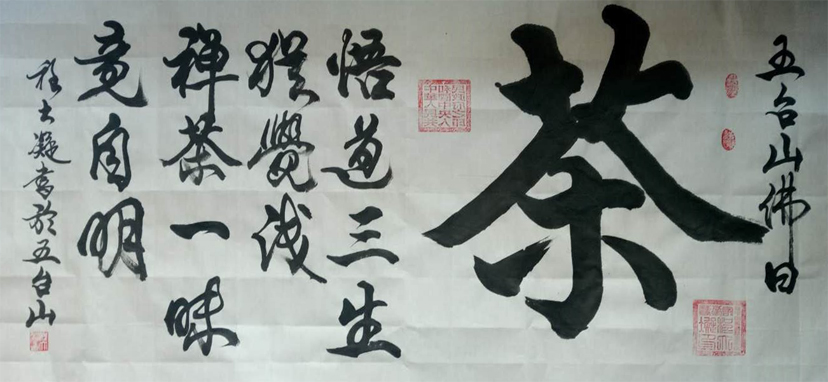 五台山佛曰
茶
悟道三生
犹觉浅
禅茶一味
竟自明
程士凝书於五台山